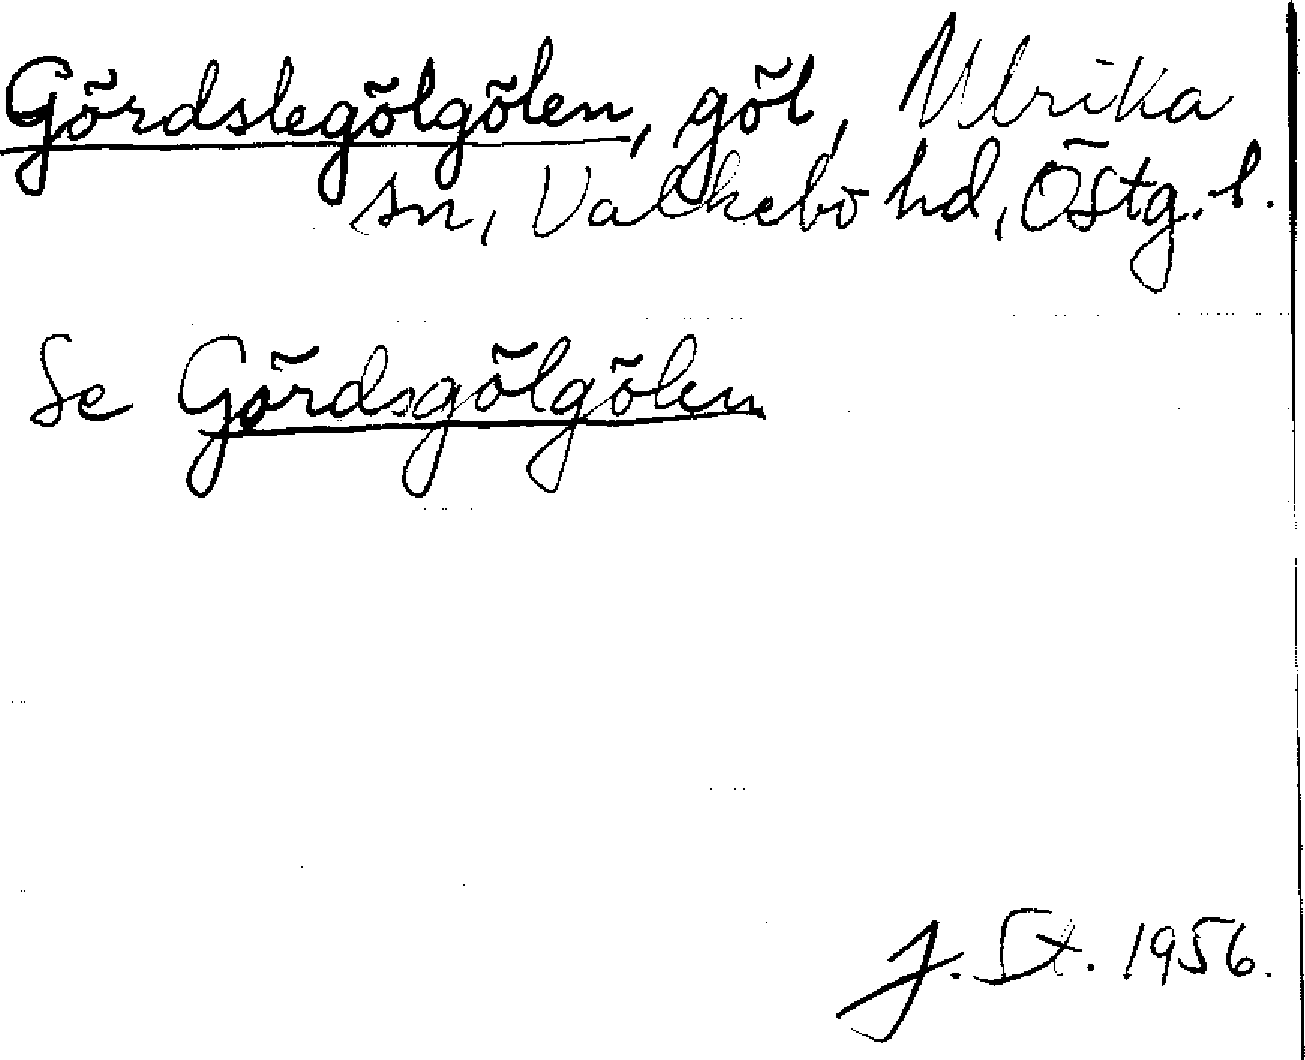 Gördslegölgölen, göl, Ulrika
sn, Valkebo hd, Östg. l.
Se Gördsgölgölen
J. St. 1956.